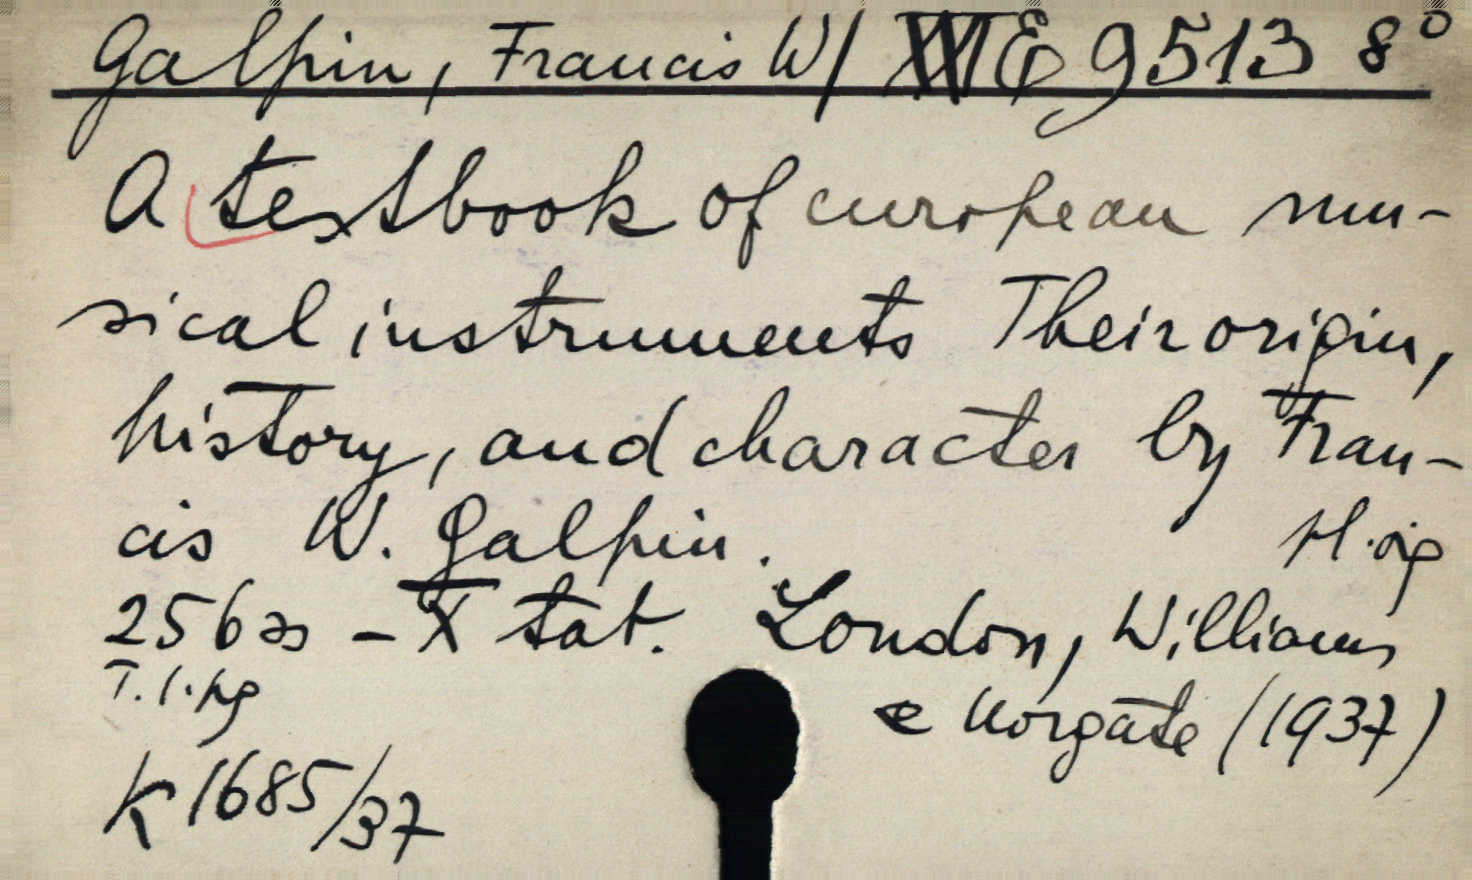 Galpin, Francis W/ XVI E 9513 8°
A textbook of european mu-
sical instruments Their origin,
history, and character by Fran-
cis W. Galpin.
256 - X tab. London, Williams
T. I. pg
e Norgate (1937)
K 1685/37